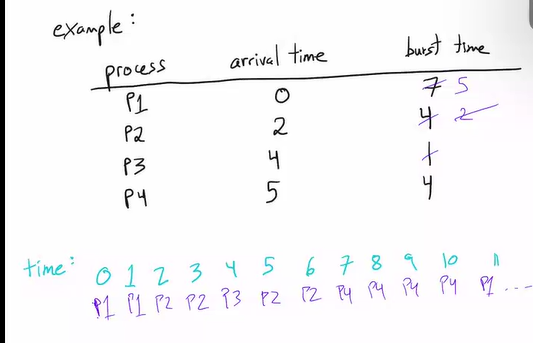 example:
process arrival time burst time
P1 0 7 5
P2 2 4 2
P3 4 1
P4 5 4
time: 0 1 2 3 4 5 6 7 8 9 10 11
P1 P1 P2 P2 P3 P2 P2 P4 P4 P4 P4 P1 ....